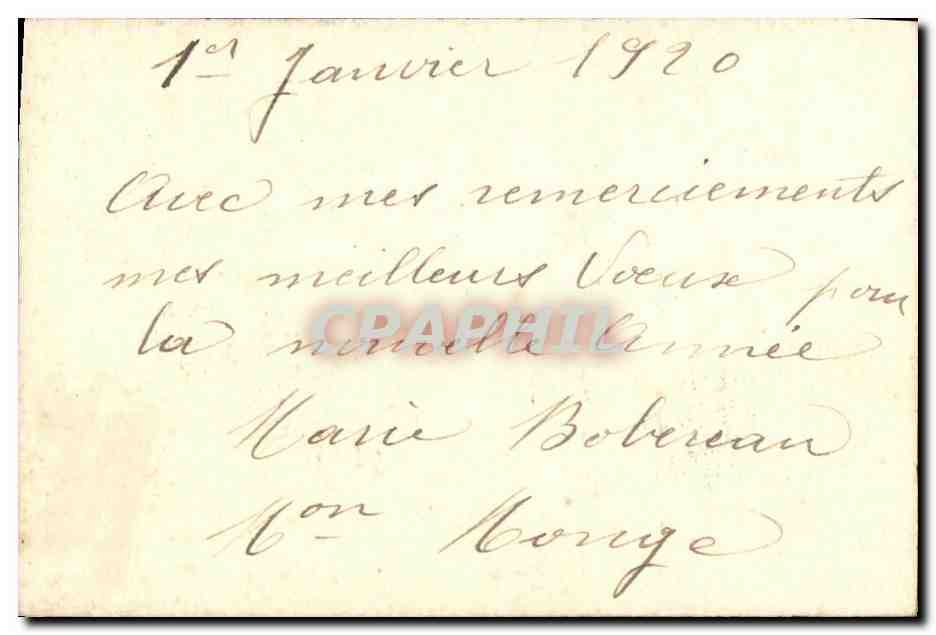 1er Janvier 1920
Avec mes remerciements
mes meilleurs Voeux pour
la nouvelle Année
CPAPHIL
Marie Bobereau
Mon Monge